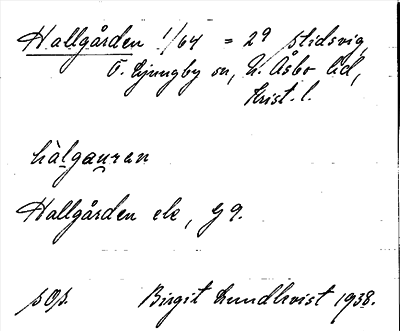 Hallgården 1/64 = 29 Stidsvig,
Ö. Ljungby sn, N. Åsbo hd,
Krist. l.
hàlgauran
Hallgården ek, G 9.
sOs. Birgit Lundkvist 1938.